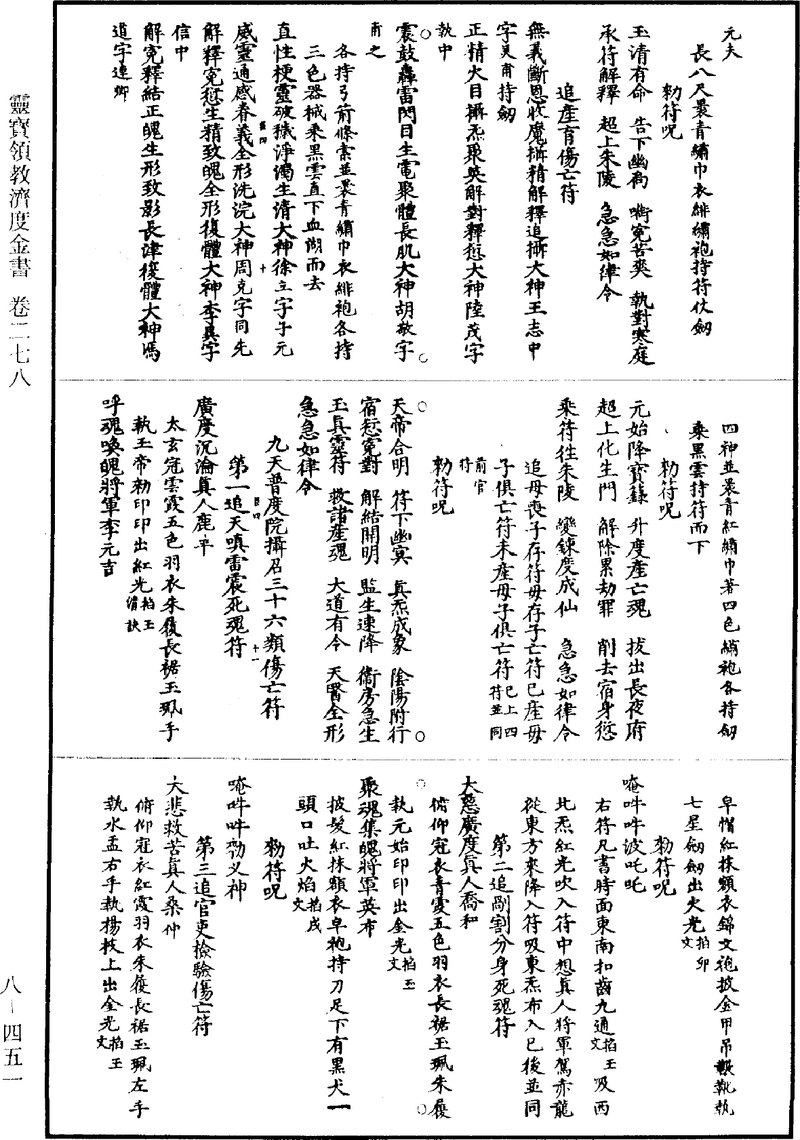 元夫
長八尺褁青繡巾衣緋繡袍持符仗劒
勑符呪
玉清有命　告下幽局　嘶寃苦爽　執對寒庭
承符解釋　超上朱陵　急急如律令
追產育傷亡符
無義斷恩收魔攝精解釋追攝大神王志中
字吳甫持劒
正精火目攝炁聚奐解對釋愆大神陸茂字
執中
震鼓轟雷閃目生電聚體長肌大神胡敬字
甫之
各持弓箭絛索並褁青繡巾衣緋袍各持
三色器械乘黑雲直下血湖而去
直性梗靈破穢淨濁生清大神徐立字子元
威靈通感眷義全形洗浣大神周克字同先
解釋寃愆生精致魄全形復體大神李眞字
信中
解寃釋結正魄生形致影長津復體大神馮
道字連卿
四神並褁青紅繡巾著四色繡袍各持劒
乘黑雲持符而下
勑符呪
元始降寶籙　升度產亡魂　拔出長夜府
超上化生門　解除累劫罪　削去宿身愆
乘符往朱陵　變鍊度成仙　急急如律令
追母喪子存符母存子亡符已產母
子俱亡符未產母子俱亡符已上四符並同
前官符
勑符呪
天帝合明　符下幽冥　眞炁成象　陰陽附行
宿愆寃對　解結開明　監生速降　衞房急生
玉眞靈符　救諸產魂　大道有令　天醫全形
急急如律令
九天普度院攝召三十六類傷亡符
第一追天嗔雷震死魂符
廣度沉淪眞人鹿平
太玄冠雲霞五色羽衣朱履長裾玉珮手
執玉帝勑印印出紅光掐玉清訣
呼魂喚魄將軍李元吉
皁帽紅抹額衣錦文袍披金甲吊靸靴執
七星劒劒出火光掐卯文
勑符呪
唵吽吽波吒吒
右符凡書時面東南扣齒九通掐玉文吸西
北炁紅光吹入符中想眞人將軍駕赤龍
從東方來降入符吸東炁布入已後並同
第二追剮割分身死魂符
大慈廣度眞人喬和
俯仰冠衣青霞五色羽衣長裾玉珮朱履
執元始印印出金光掐玉文
聚魂集魄將軍英布
披髮紅抹額衣皁袍持刀足下有黑犬一
頭口吐火焰掐戌文
勑符呪
唵吽吽勑义神
第三追官吏檢驗傷亡符
大悲救苦眞人桑仲
俯仰冠衣紅霞羽衣朱履長裾玉珮左手
執水盂右手執楊枝上出金光掐玉文
靈寶領教濟度金書　卷二七八
八－四五一